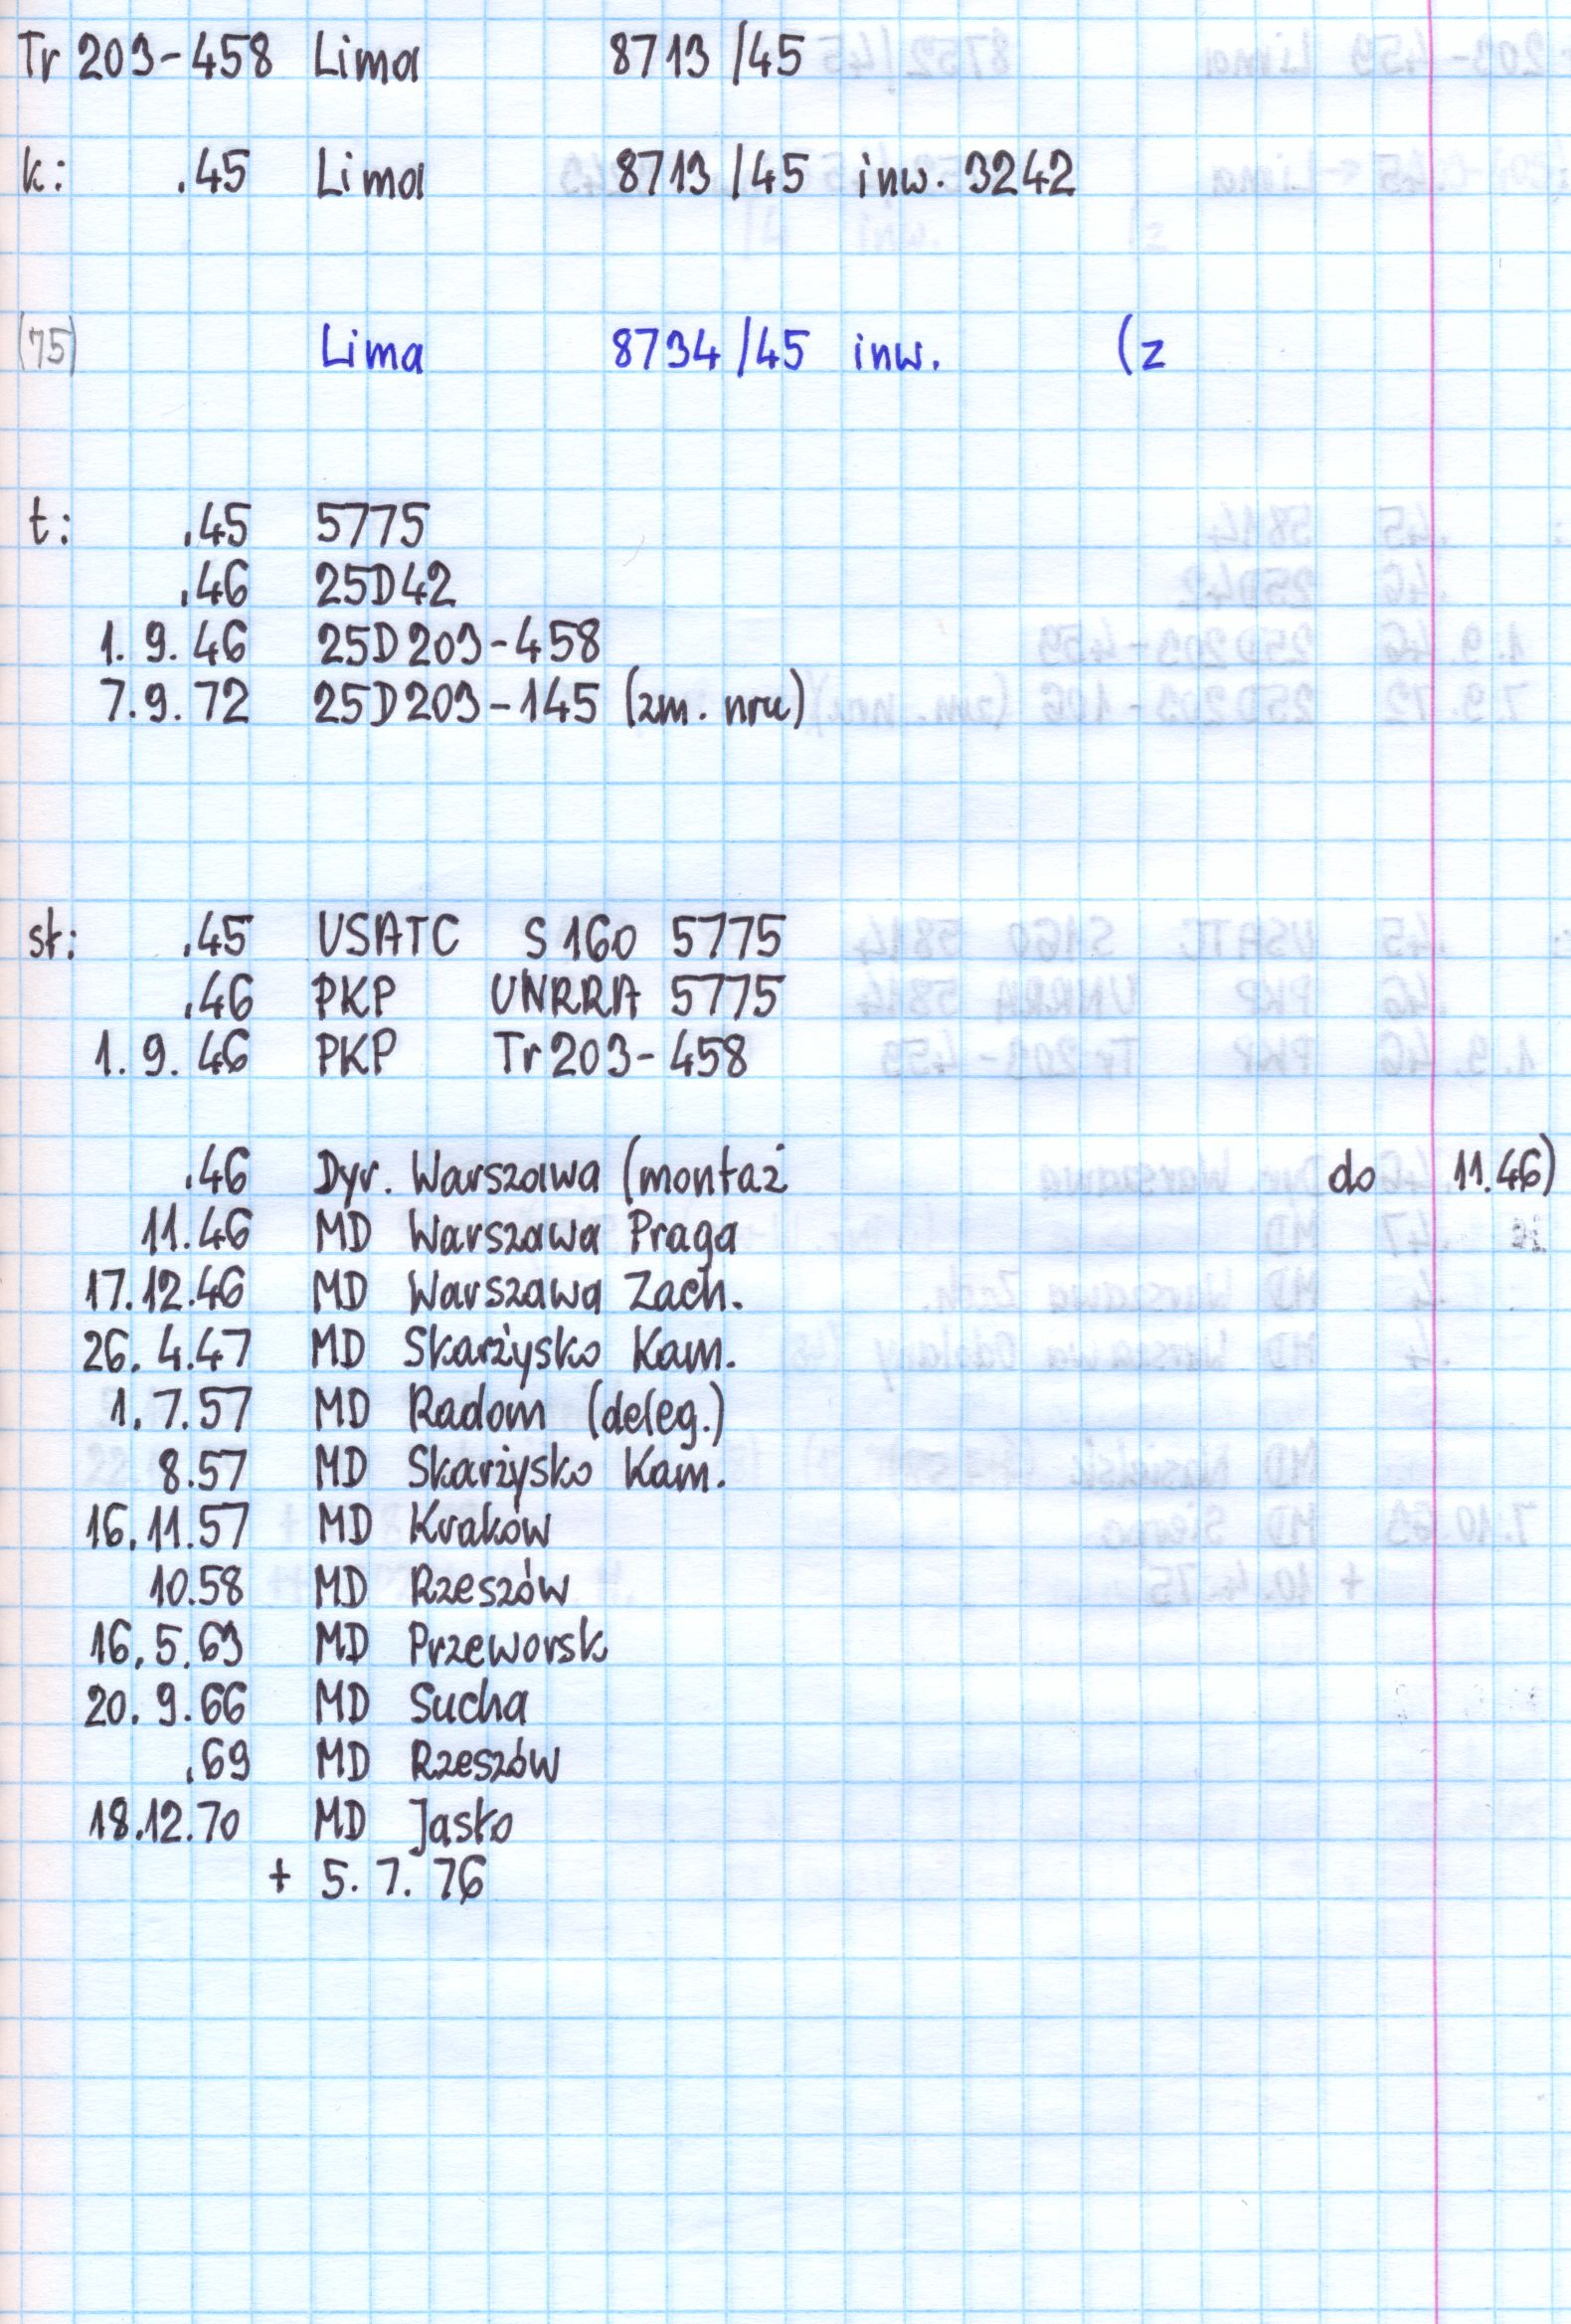 Tr 203-458 Lima 8713/45
k: .45 Lima 8713/45 inw. 3242
(75) Lima 8734/45 inw. (z
t: .45 5775
.46 25D42
1. 9. 46 25D203-458
7. 9. 72 25D203-145 (zm. nru)
st: .45 USATC S160 5775
.46 PKP UNRRA 5775
1. 9. 46 PKP Tr203-458
.46 Dyr. Warszawa (montaż do 11.46)
11.46 MD Warszawa Praga
17.12.46 MD Warszawa Zach.
26. 4.47 MD Skarżysko Kam.
1. 7.57 MD Radom (deleg.)
8.57 MD Skarżysko Kam.
16.11.57 MD Kraków
10.58 MD Rzeszów
16.5.63 MD Przeworsk
20. 9.66 MD Sucha
.69 MD Rzeszów
18.12.70 MD Jasło
+ 5. 7. 76